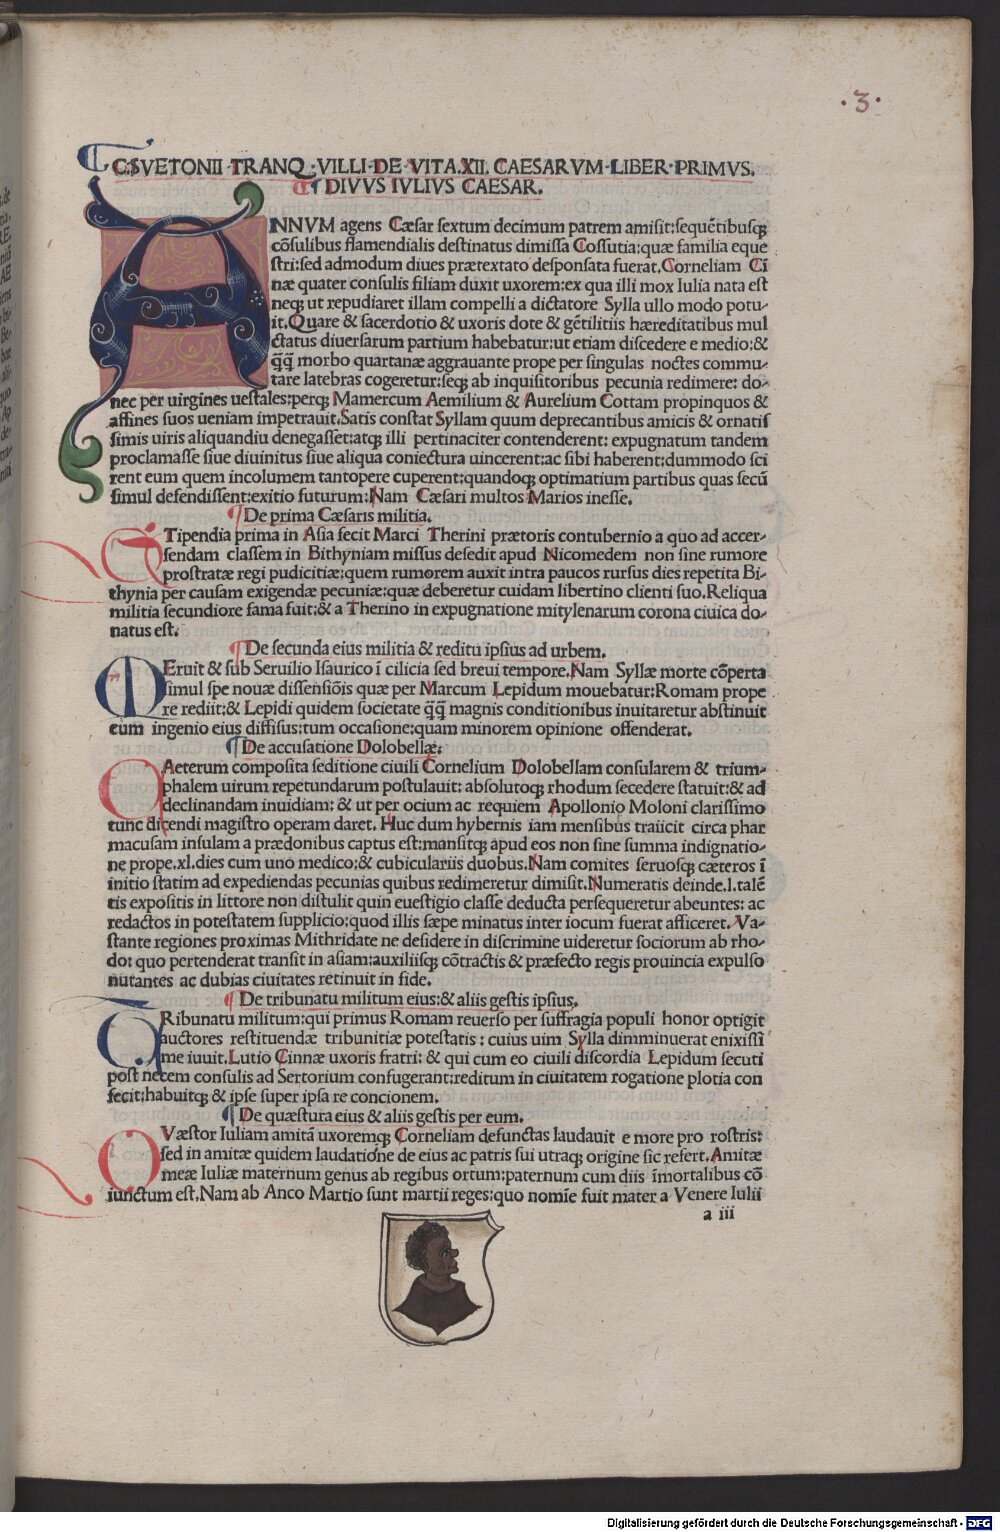 ·3·
C.SVETONII TRANQ·VILLI·DE·VITA.XII. CAESARVM·LIBER·PRIMVS.
DIVVS IVLIVS CAESAR.
ANNVM agens Cæsar sextum decimum patrem amisit:sequētibusqȝ
cōsulibus flamendialis destinatus dimissa Cossutia:quæ familia eque
stri:sed admodum diues prætextato desponsata fuerat.Corneliam Ci
næ quater consulis filiam duxit uxorem:ex qua illi mox Iulia nata est
neqȝ ut repudiaret illam compelli a dictatore Sylla ullo modo potu-
it.Quare & sacerdotio & uxoris dote & gētilitiis hæreditatibus mul
ctatus diuersarum partium habebatur:ut etiam discedere e medio:&
q̄q̄ morbo quartanæ aggrauante prope per singulas noctes commu-
tare latebras cogeretur:seqȝ ab inquisitoribus pecunia redimere: do-
nec per uirgines uestales:perqȝ Mamercum Aemilium & Aurelium Cottam propinquos &
affines suos ueniam impetrauit.Satis constat Syllam quum deprecantibus amicis & ornatis
simis uiris aliquandiu denegasset:atqȝ illi pertinaciter contenderent: expugnatum tandem
proclamasse siue diuinitus siue aliqua coniectura uincerent:ac sibi haberent:dummodo sci
rent eum quem incolumem tantopere cuperent:quandoqȝ optimatium partibus quas secū
simul defendissent:exitio futurum:Nam Cæsari multos Marios inesse.
¶De prima Cæsaris militia.
STipendia prima in Asia fecit Marci Therini prætoris contubernio a quo ad accer-
sendam classem in Bithyniam missus desedit apud Nicomedem non sine rumore
prostratæ regi pudicitiæ:quem rumorem auxit intra paucos rursus dies repetita Bi-
thynia per causam exigendæ pecuniæ:quæ deberetur cuidam libertino clienti suo.Reliqua
militia secundiore fama fuit:& a Therino in expugnatione mitylenarum corona ciuica do-
natus est.
¶De secunda eius militia & reditu ipsius ad urbem.
MEruit & sub Seruilio Isaurico ī cilicia sed breui tempore.Nam Syllæ morte cōperta
simul spe nouæ dissensiōis quæ per Marcum Lepidum mouebatur:Romam prope
re rediit:& Lepidi quidem societate q̄q̄ magnis conditionibus inuitaretur abstinuit
cum ingenio eius diffisus:tum occasione:quam minorem opinione offenderat.
¶De accusatione Dolobellæ.
CAeterum composita seditione ciuili Cornelium Dolobellam consularem & trium-
phalem uirum repetundarum postulauit: absolutoqȝ rhodum secedere statuit:& ad
declinandam inuidiam: & ut per ocium ac requiem Apollonio Moloni clarissimo
tunc dicendi magistro operam daret. Huc dum hybernis iam mensibus traiicit circa phar
macusam insulam a prædonibus captus est:mansitqȝ apud eos non sine summa indignatio-
ne prope.xl.dies cum uno medico:& cubiculariis duobus.Nam comites seruosqȝ cæteros ī
initio statim ad expediendas pecunias quibus redimeretur dimisit.Numeratis deinde.l.talē
tis expositis in littore non distulit quin euestigio classe deducta persequeretur abeuntes: ac
redactos in potestatem supplicio:quod illis sæpe minatus inter iocum fuerat afficeret. Va-
stante regiones proximas Mithridate ne desidere in discrimine uideretur sociorum ab rho-
do: quo pertenderat transit in asiam:auxiliisqȝ cōtractis & præfecto regis prouincia expulso
nutantes ac dubias ciuitates retinuit in fide.
¶De tribunatu militum eius:& aliis gestis ipsius.
TRibunatu militum:qui primus Romam reuerso per suffragia populi honor optigit
auctores restituendæ tribunitiæ potestatis : cuius uim Sylla dimminuerat enixissi
me iuuit.Lutio Cinnæ uxoris fratri: & qui cum eo ciuili discordia Lepidum secuti
post necem consulis ad Sertorium confugerant:reditum in ciuitatem rogatione plotia con
fecit:habuitqȝ & ipse super ipsa re concionem.
¶De quæstura eius & aliis gestis per eum.
QVæstor Iuliam amitā uxoremqȝ Corneliam defunctas laudauit e more pro rostris:
sed in amitæ quidem laudatione de eius ac patris sui utraqȝ origine sic refert.Amitæ
meæ Iuliæ maternum genus ab regibus ortum:paternum cum diis īmortalibus cō
iunctum est.Nam ab Anco Martio sunt martii reges:quo nomie fuit mater a Venere Iulii
a iii
Digitalisierung gefördert durch die Deutsche Forschungsgemeinschaft - DFG